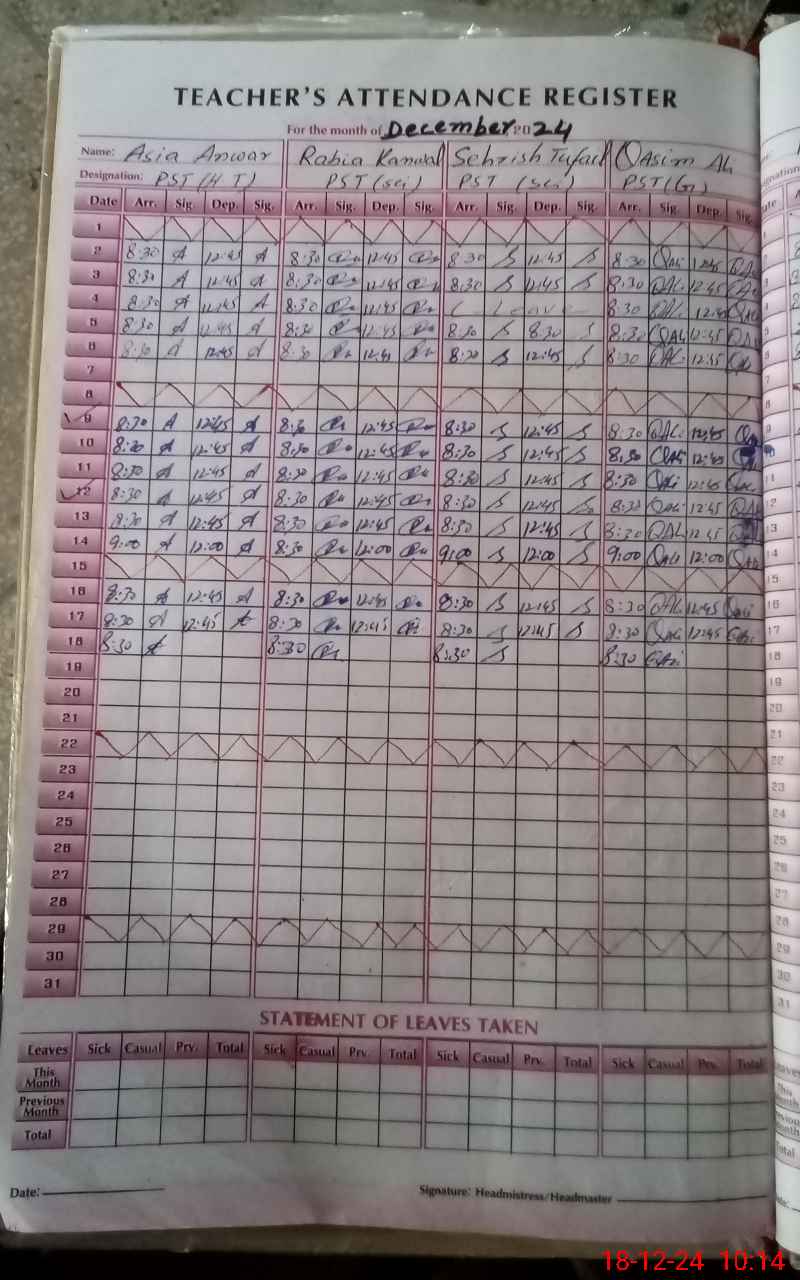 TEACHER'S ATTENDANCE REGISTER
For the month of December 2024
Name: Asia Anwar Rabia Kanwal Sehrish Tufail Qasim Ali
Designation: PST (H T) PST (sci) PST (sci) PST (G)
Date Arr. Sig. Dep. Sig. Arr. Sig. Dep. Sig. Arr. Sig. Dep. Sig. Arr. Sig. Dep. Sig.
1
2 8:30 A 12:45 A 8:30 12:45 8:30 S 12:45 S 8:30 QAi 12:45 QAi
3 8:30 A 12:45 A 8:30 12:45 8:30 S 12:45 S 8:30 QALi 12:45
4 8:30 A 12:45 A 8:30 12:45 Leave 8:30 QALi 12:45
5 8:30 A 12:45 A 8:30 12:45 8:30 S 8:30 S 8:30 QALi 12:45
6 8:30 A 12:45 A 8:30 12:45 8:30 S 12:45 S 8:30 QALi 12:45
7
8
9 8:30 A 12:45 A 8:30 12:45 8:30 S 12:45 S 8:30 QALi 12:45
10 8:30 A 12:45 A 8:30 12:45 8:30 S 12:45 S 8:30 12:45
11 8:30 A 12:45 A 8:30 12:45 8:30 S 12:45 S 8:30 12:45
12 8:30 A 12:45 A 8:30 12:45 8:30 S 12:45 S 8:30 12:45
13 8:30 A 12:45 A 8:30 12:45 8:30 S 12:45 S 8:30 QALi 12:45
14 9:00 A 12:00 A 8:30 12:00 9:00 S 12:00 S 9:00 12:00
15
16 8:30 A 12:45 A 8:30 12:45 8:30 S 12:45 S 8:30 QALi 12:45
17 8:30 A 12:45 A 8:30 12:45 8:30 S 12:45 S 8:30 12:45
18 8:30 A 8:30 8:30 S 8:30
19
20
21
22
23
24
25
26
27
28
29
30
31
STATEMENT OF LEAVES TAKEN
Leaves Sick Casual Prv. Total Sick Casual Prv. Total Sick Casual Prv. Total Sick Casual Prv. Total
This Month
Previous Month
Total
Date: Signature: Headmistress/Headmaster
18-12-24 10:14